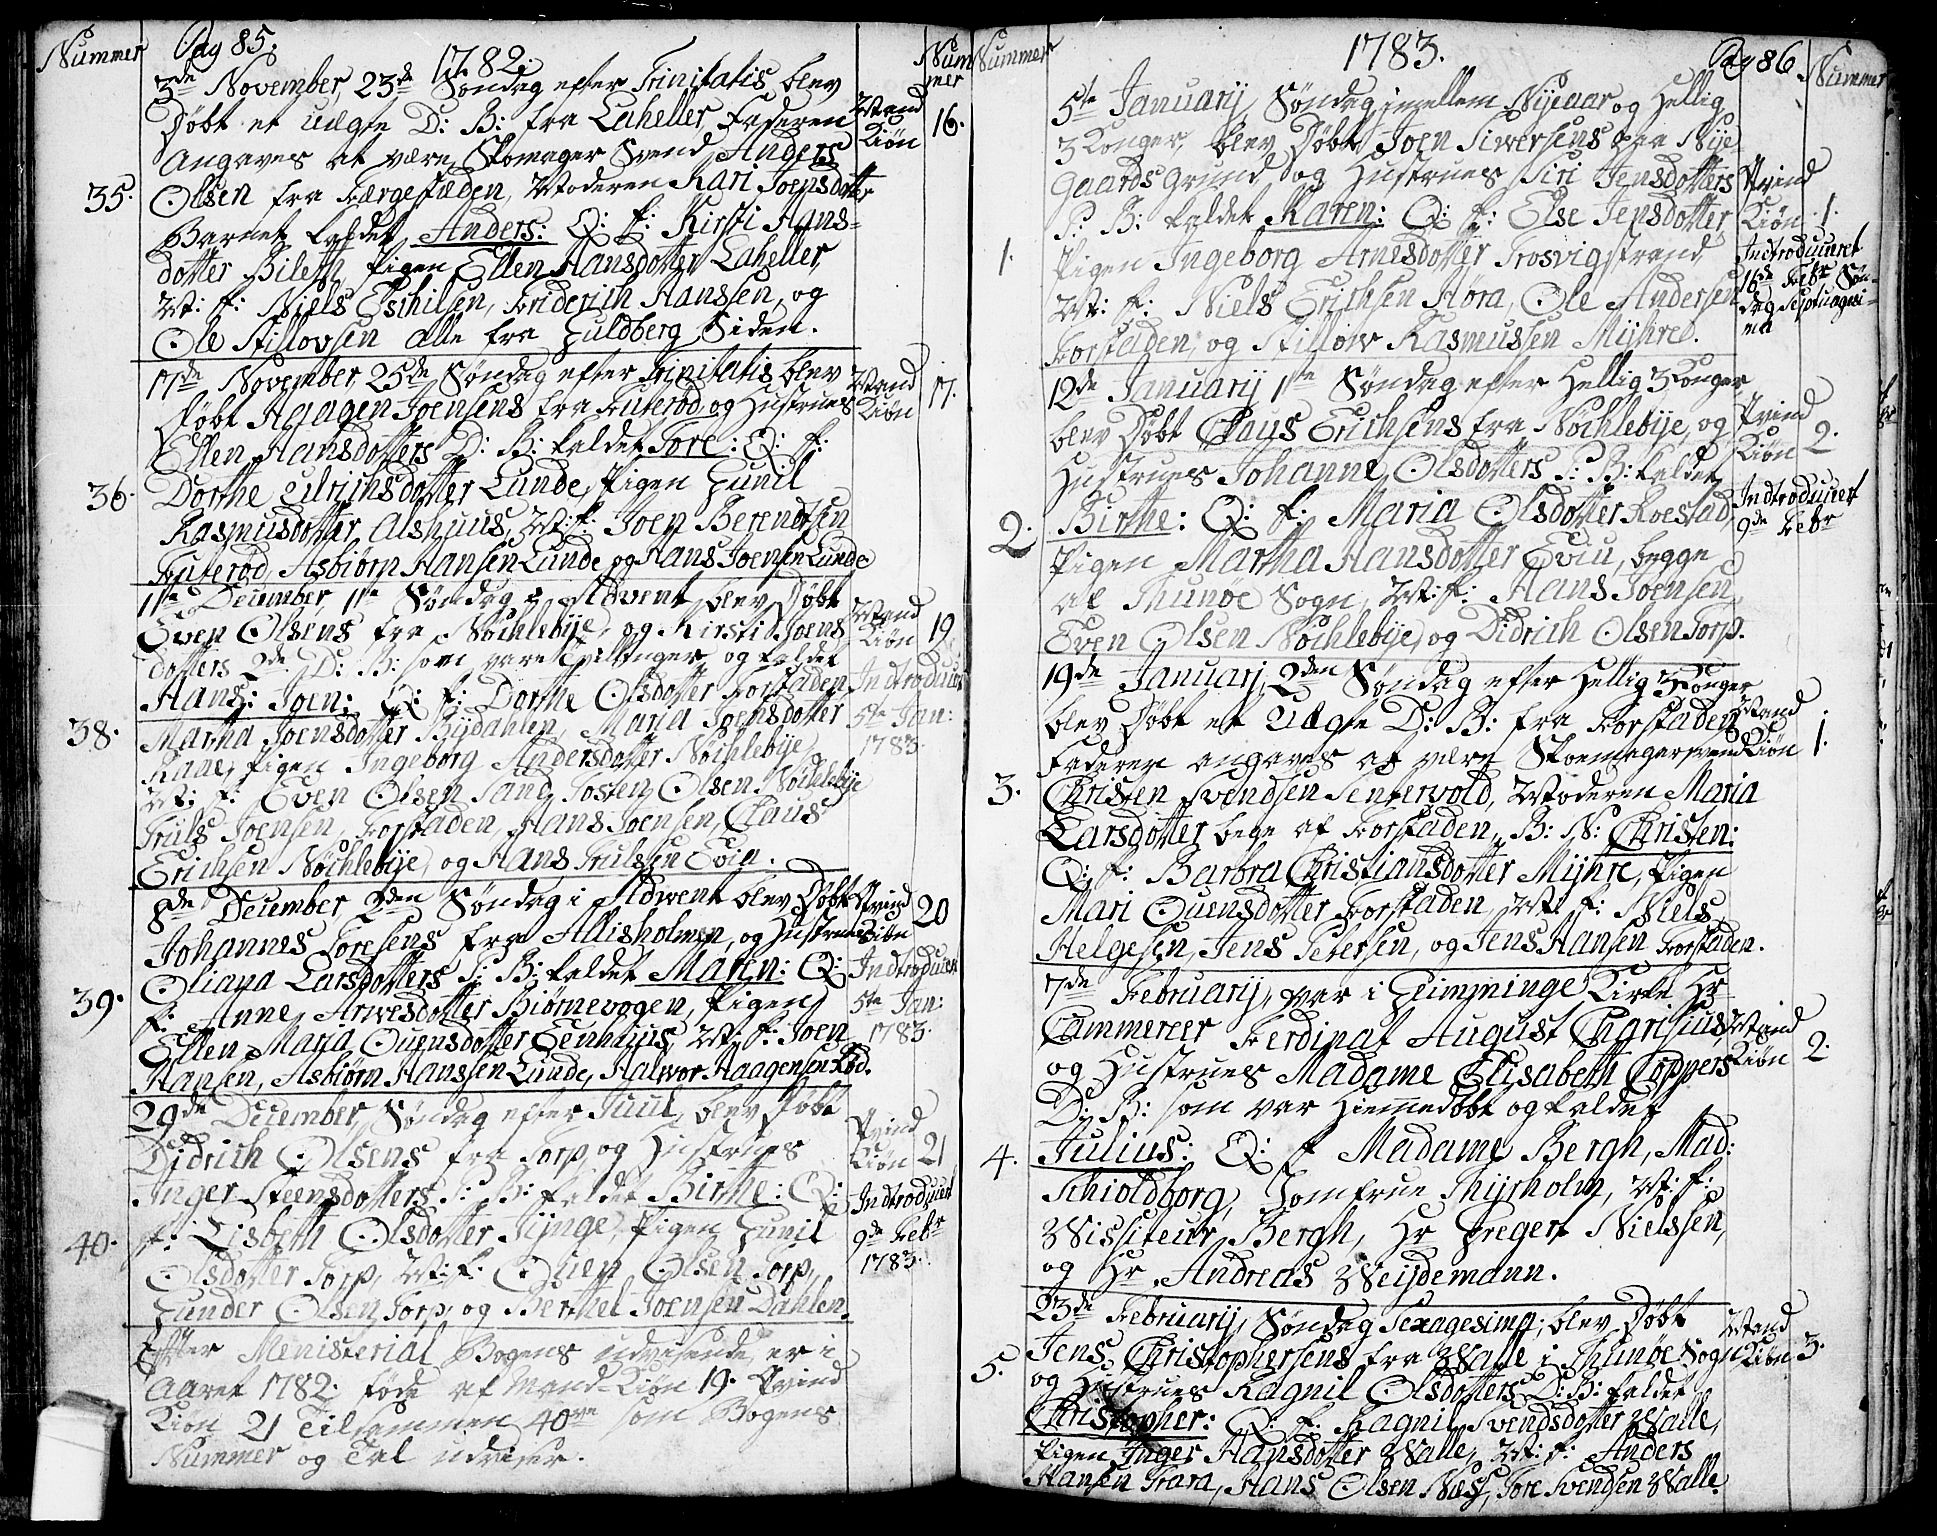 Nummer Pag 85. 1782. Nummer
3de November 23de Søndag efter Trinitatis blev
Døbt et uægte D: B: fra Laheller Faderen
Angaves at være Skomager Svend Anders
Olsen fra Færgestæden, Moderen Kari Joensdotter
Barnet kaldet Anders: Q: f: Kirsti Hans-
dotter Bileth, Pigen Ellen Hansdotter Laheller
M: f: Niels Eschilsen, Friderich Hanssen, og
Ole Stillovsen alle fra Guldberg Siden.
35.
Mand Kiøn 16.
17de November 25de Søndag efter Trinitatis blev
Døbt Haagen Joensens fra Futerød, og Hustrues
Ellen Hansdotters D: B: kaldet Tore: Q: f:
Dorthe Ulrichsdotter Lunde, Pigen Gunil
Rasmusdotter Alshuus, M: f: Joen Berendtsen
Futerød, Asbiørn Hansen Lunde og Hans Joensen Lunde
36.
Mand Kiøn 17.
1ste December 1ste Søndag i Advent blev Døbt
Even Olsens fra Nøchlebije, og Kirsti Joens
dotters 2de D: B: som vare Tvillinger og kaldet
Hans: Joen: Q: f: Dorthe Olsdotter Forstaden
Martha Joensdotter Rijdahlen, Maria Joensdotter
Raae, Pigen Ingeborg Andersdotter Nøchlebije
M: f: Even Olsen Sand, Tosten Olsen Nøchlebije
Truls Joensen, Forstaden, Hans Joensen, Claus
Erichsen Nøchlebije, og Hans Trulsen Evia.
38.
Mand Kiøn 19
Indtroducert
5te Jan:
1783.
8de December 2den Søndag i Adwent blev Døbt
Johannes Toresens fra Allisholmen, og Hustrues
Oliana Larsdotters P: B: kaldet Maren: Q:
f: Anne Arnesdotter Biørnevogen, Pigen
Ellen Maria Ouensdotter Eenhuus, M: f: Joen
Hansen, Asbiørn Hanssen Lunde, Halvor Haagensen Rød.
39.
Qvind Kiøn 20
Indtroducert
5te Jan:
1783.
29de December, Søndag efter Juul, blev Døbt
Didrich Olsens fra Torp, og Hustrues
Inger Steensdotters P: B: kaldet Birthe: Q:
f: Lisbeth Olsdotter Kynge, Pigen Gunil
Olsdotter Torp, M: f: Ouen Olsen Torp,
Gunder Olsen Torp, og Berthel Joensen Dahlen.
40.
Qvind Kiøn 21
Indtroducert
9de Febr
1783.
Efter Ministerial Bogens udvisende, er i
Aaret 1782: føde af Mand-Kiøn 19. Qvind
Kiøn 21 Tilsammen 40ve som Bogens
Nummer og Tal udviser.
Nummer 1783. Pag 86. Nummer
5te Januarij, Søndag imellem Nyeaar og Hellig
3 Konger, blev Døbt Joen Siwersens paa Nije
Gaards Grund og Hustrues Siri Jensdotters
P: B: kaldet Karen: Q: f: Else Jensdotter,
Pigen Ingeborg Arnesdotter Trosvigstrand
M: f: Niels Erichsen Høra, Ole Andersen
Forstaden, og Stillow Rasmussen Mijhre.
1.
Qvind
Kiøn 1.
Indtroduceret
16de Febr Søn-
dag Septuagesi-
ma
12de Januarij 1ste Søndag efter Hellig 3 Konger
blev Døbt Claus Erichsens fra Nøchlebije, og
Hustrues Johanne Olsdotters P: B: kaldet
Birthe: Q: f: Maria Olsdotter Roestad,
Pigen Martha Hansdotter Eviu, begge
af Thunøe Sogn, M: f: Hans Joensen,
Even Olsen Nøchlebije, og Didrich Olsen Torp.
2.
Qvind
Kiøn 2.
Indtroducert
9de Febr
19de Januarj 2den Søndag efter Hellig 3 Konger
blev Døbt et Uægte D: B: fra Forstaden
Faderen angaves at være Skoemagersvend
Christen Svendsen Sentervold, Moderen Maria
Larsdotter bege af Forstaden, B: N: Christen:
Q: f: Barbra Christiansdotter Mijhre, Pigen
Mari Ouensdotter Forstaden, M: f: Niels
Helgesen, Jens Petersen, og Jens Hansen Forstaden.
3.
Mand
Kiøn 1.
7de Februarij, var i Glimminge Kirke Hr
Cammereer Ferdinat August Charisius,
og Hustrues Madame Elisabeth Coppers
D: B: som var Hiemmedøbt og kaldet
Julius: Q: f Madame Bergh, Mad:
Schioldborg, Jomfrue Thijrholm, M: f:
Wissiteur Bergh, Hr Gregert Nielssen,
og Hr Andreas Weijdemann.
4.
Mand
Kiøn 2.
23de Februarij, Søndag Sexagesima, blev Døbt
Jens Christophersens fra Walle i Thunøe Sogn
og Hustrues Ragnil Olsdotters D: B: kaldet
Christopher: Q: f: Ragnil Svendsdotter Walle,
Pigen Inger Hansdotter Walle, M: f: Anders
Hansen Fara, Hans Olsen Næs, Tore Svendsen Walle.
5.
Mand
Kiøn 3.